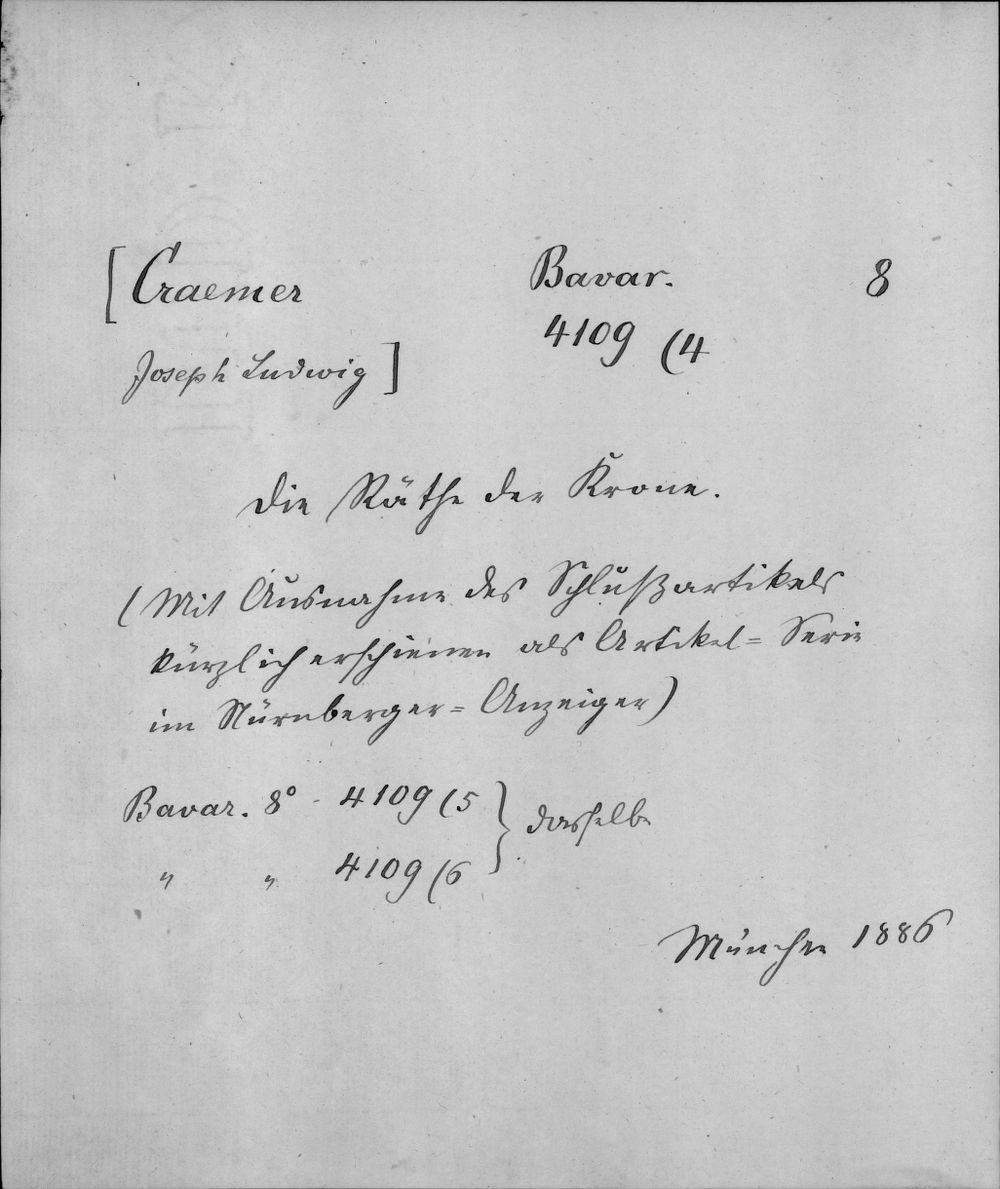 [Craemer Bavar. 8
4109 (4
Joseph Ludwig]
Die Räthe der Krone.
(Mit Ausnahme des Schlußartikels
kürzlich erschienen als Artikel= Serie
im Nürnberger= Anzeiger)
Bavar. 8° - 4109 (5 } dasselbe
" " 4109 (6
München 1886